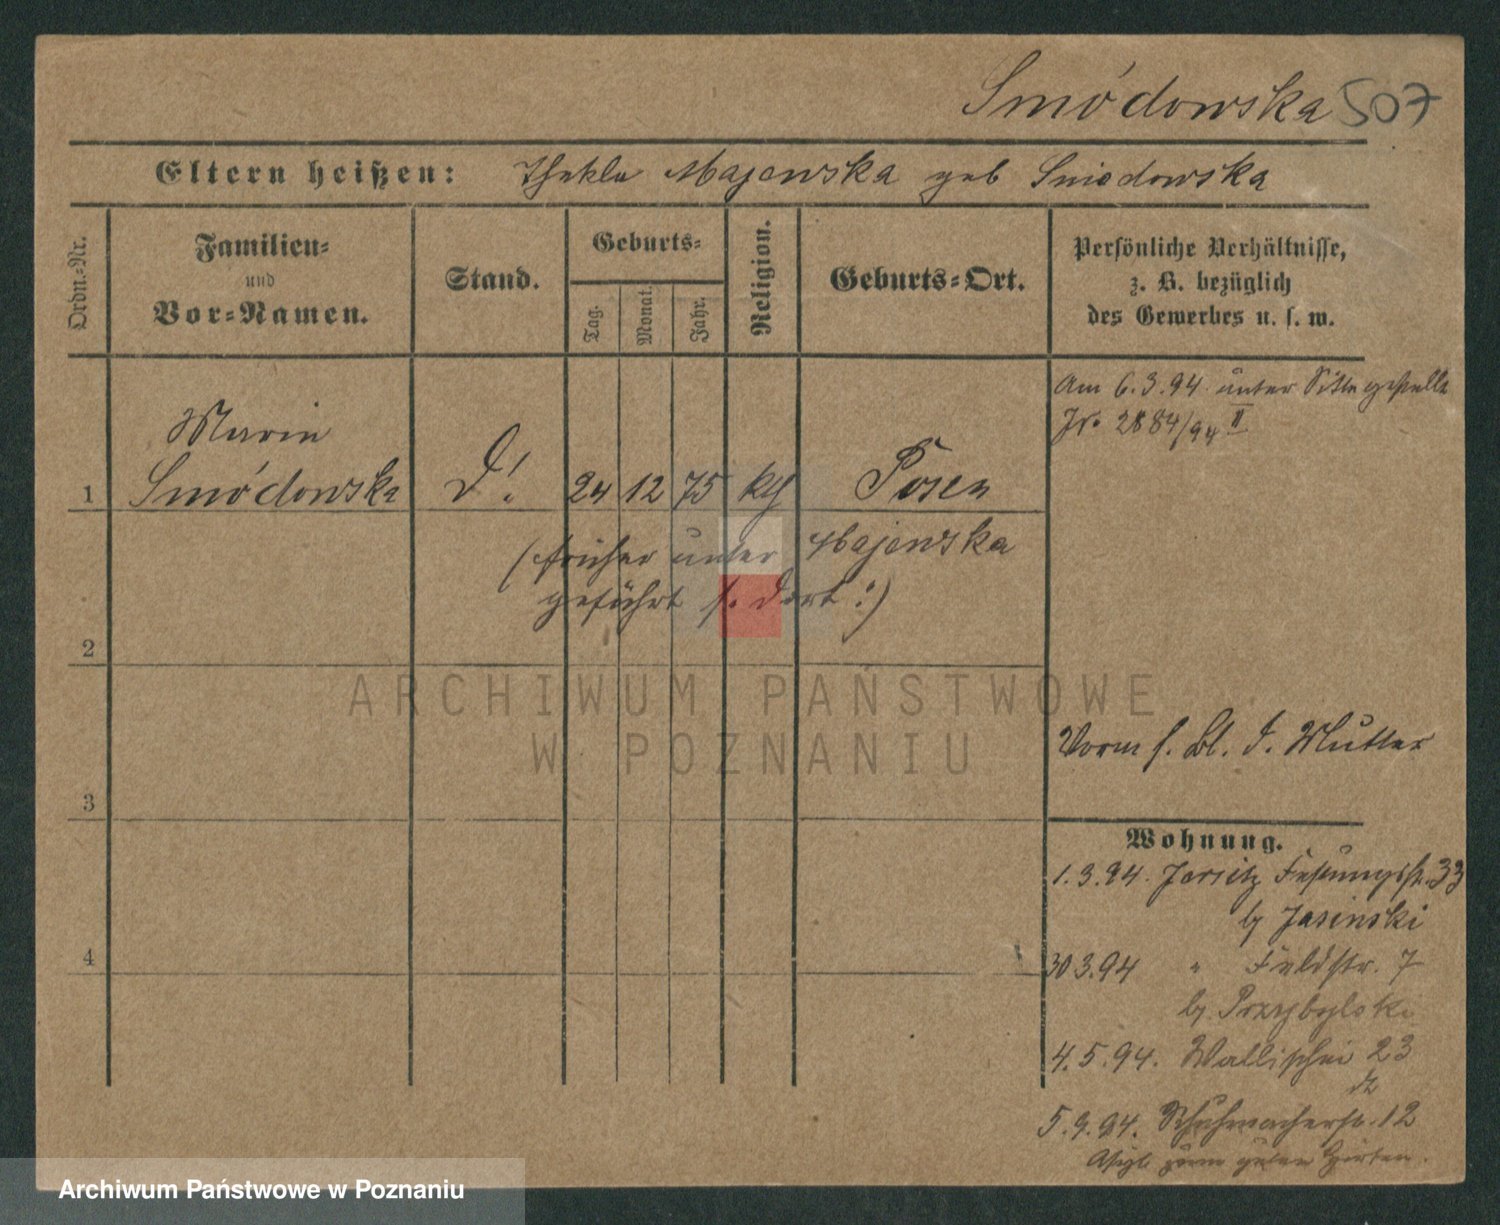 Smódowska 507
Eltern heißen: Thekla Majewska geb Smiodowska
Ordn.-Nr.
Familien-
und
Vor-Namen.
Stand.
Geburts-
Tag.
Monat.
Jahr.
Religion.
Geburts-Ort.
Persönliche Verhältnisse,
z. B. bezüglich
des Gewerbes u. s. w.
Am 6.3.94 unter Sitte gestellt
Jr. 2884/94 II
Maria
1 Smódowska D! 24 12 75 kth Posen
(früher unter Majewska
geführt s. dort :)
2
ARCHIWUM PAŃSTWOWE
W POZNANIU
Vorm s. Bl. d. Mutter
3
Wohnung.
1.3.94. Jersitz Festungsstr. 33
by Jasinski
4
30 3.94 " Feldstr. 7
by Przybylski
4.5.94. Wallischei 23
5.9.94. Schuhmacherstr. 12
Asyl zum guten Hirten.
Archiwum Państwowe w Poznaniu